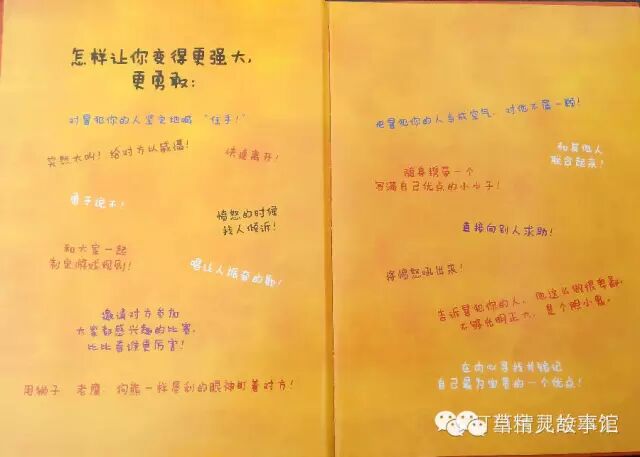 怎样让你变得更强大,
更勇敢:
对冒犯你的人坚定地喊“住手!”
突然大叫! 给对方以威慑!
快速离开!
勇于说不!
愤怒的时候
找人倾诉!
和大家一起
制定游戏规则!
唱让人振奋的歌!
邀请对方参加
大家都感兴趣的比赛,
比比看谁更厉害!
用狮子 老鹰 狗熊一样犀利的眼神盯着对方!
把冒犯你的人当成空气, 对他不屑一顾!
和其他人
联合起来!
随身携带一个
写满自己优点的小本子!
直接向别人求助!
将愤怒吼出来!
告诉冒犯你的人, 他这么做很卑鄙,
不够光明正大, 是个胆小鬼!
在内心寻找并铭记
自己最为宝贵的一个优点!
草精灵故事馆